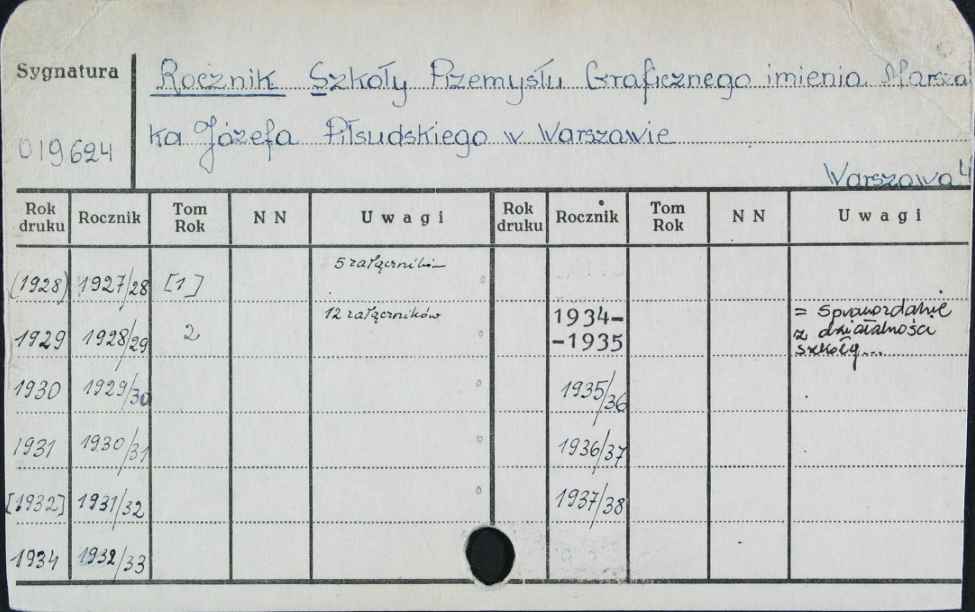 Sygnatura
Rocznik Szkoły Przemysłu Graficznego imienia Marsza
019624
ka Józefa Piłsudskiego w Warszawie
Warszawa 4
Rok druku Rocznik Tom Rok N N Uwagi Rok druku Rocznik Tom Rok N N Uwagi
[1928] 1927/28 [1] 5 załączników
1929 1928/29 2 12 załączników 1934-
-1935 = Sprawozdanie
z działalności
szkoły...
1930 1929/30 1935/36
1931 1930/31 1936/37
[1932] 1931/32 1937/38
1934 1932/33